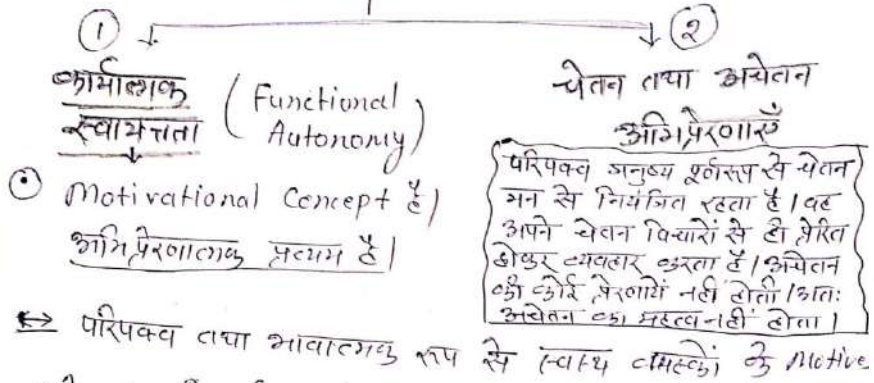 ①
कार्यात्मक
स्वायत्तता (Functional Autonomy)
⊙ Motivational Concept है।
अभिप्रेरणात्मक प्रत्यय है।
②
चेतन तथा अचेतन
अभिप्रेरणाएँ
परिपक्व मनुष्य पूर्णरूप से चेतन
मन से नियंत्रित रहता है। वह
अपने चेतन विचारों से ही प्रेरित
होकर व्यवहार करता है। अचेतन
की कोई प्रेरणायें नहीं होती। अतः
अचेतन का महत्व नहीं होता।
↔ परिपक्व तथा भावात्मक रूप से स्वस्थ वयस्कों के Motive